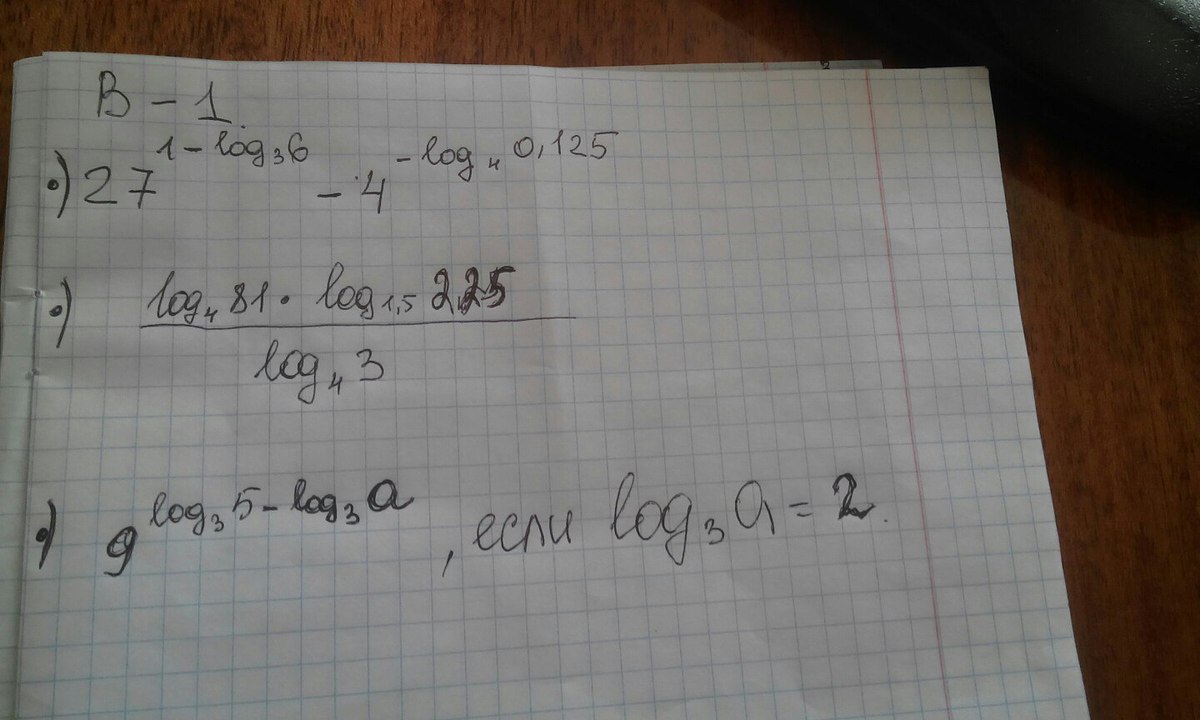 В - 1.
•) 27^{1 - log_3 6} - 4^{-log_4 0,125}
•) \frac{log_4 81 · log_{1,5} 2,25}{log_4 3}
•) 9^{log_3 5 - log_3 a}, если log_3 a = 2.